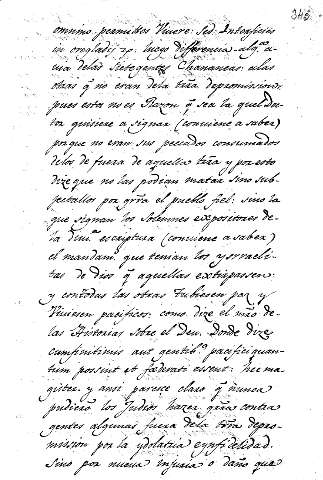 345.
omnino permittes vivere: sed interficies
in ore gladij 20. luego differencia algª a-
via delas siete gentes Chananeas alas
otras q̃ no eran dela trrã de promission,
pues esta no es Razon q̃ sea la quel Du-
tor quisiere asignar (conviene a saber)
porque no eran sus pecados consumados
delos de fuera de aquella trrã y por esto
dize que no las podian matar sino sub-
jectallos por grrã el pueblo fiel: sino la
que signan los solemnes expositores de-
la diuª escriptura (conviene a saber)
el mandamº que tenian los ysrraeli-
tas de dios q̃ aquellas extirpassen
y con todas las otras tubiesen paz y
viviesen pacificos: como dize el mrõ de-
las Historias sobre el Deu. Donde dize
cum finitimis aut gentibº pacifici quan-
tum possint et foederati essent: hec ma-
gister. y ansi parece claro q̃ nunca
pudierõ los Judios hazer grrã contra
gentes algunas fuera dela trrã de pro-
mission por la ydolatria e ynfidelidad.
sino por nueva injuria o daño que